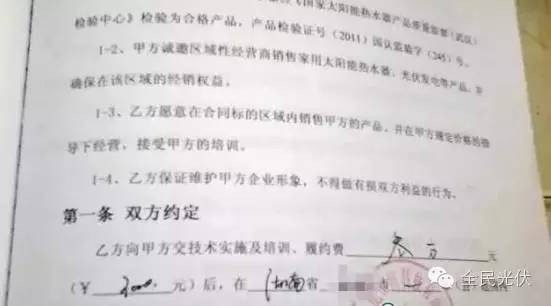 《国家太阳能热水器产品质量监督(武汉)
检验中心》检验为合格产品,产品检验证号(2011)国认监验字(245)号。
1-2、甲方诚邀区域性经营商销售家用太阳能热水器、光伏发电等产品,并
确保在该区域的经销权益。
1-3、乙方愿意在合同标的区域内销售甲方的产品,并在甲方规定价格的指
导下经营,接受甲方的培训。
1-4、乙方保证维护甲方企业形象,不得做有损双方利益的行为。
第一条 双方约定
乙方向甲方交技术实施及培训、履约费 叁万 元
(¥ 元)后,在 湖南 省 市
全民光伏